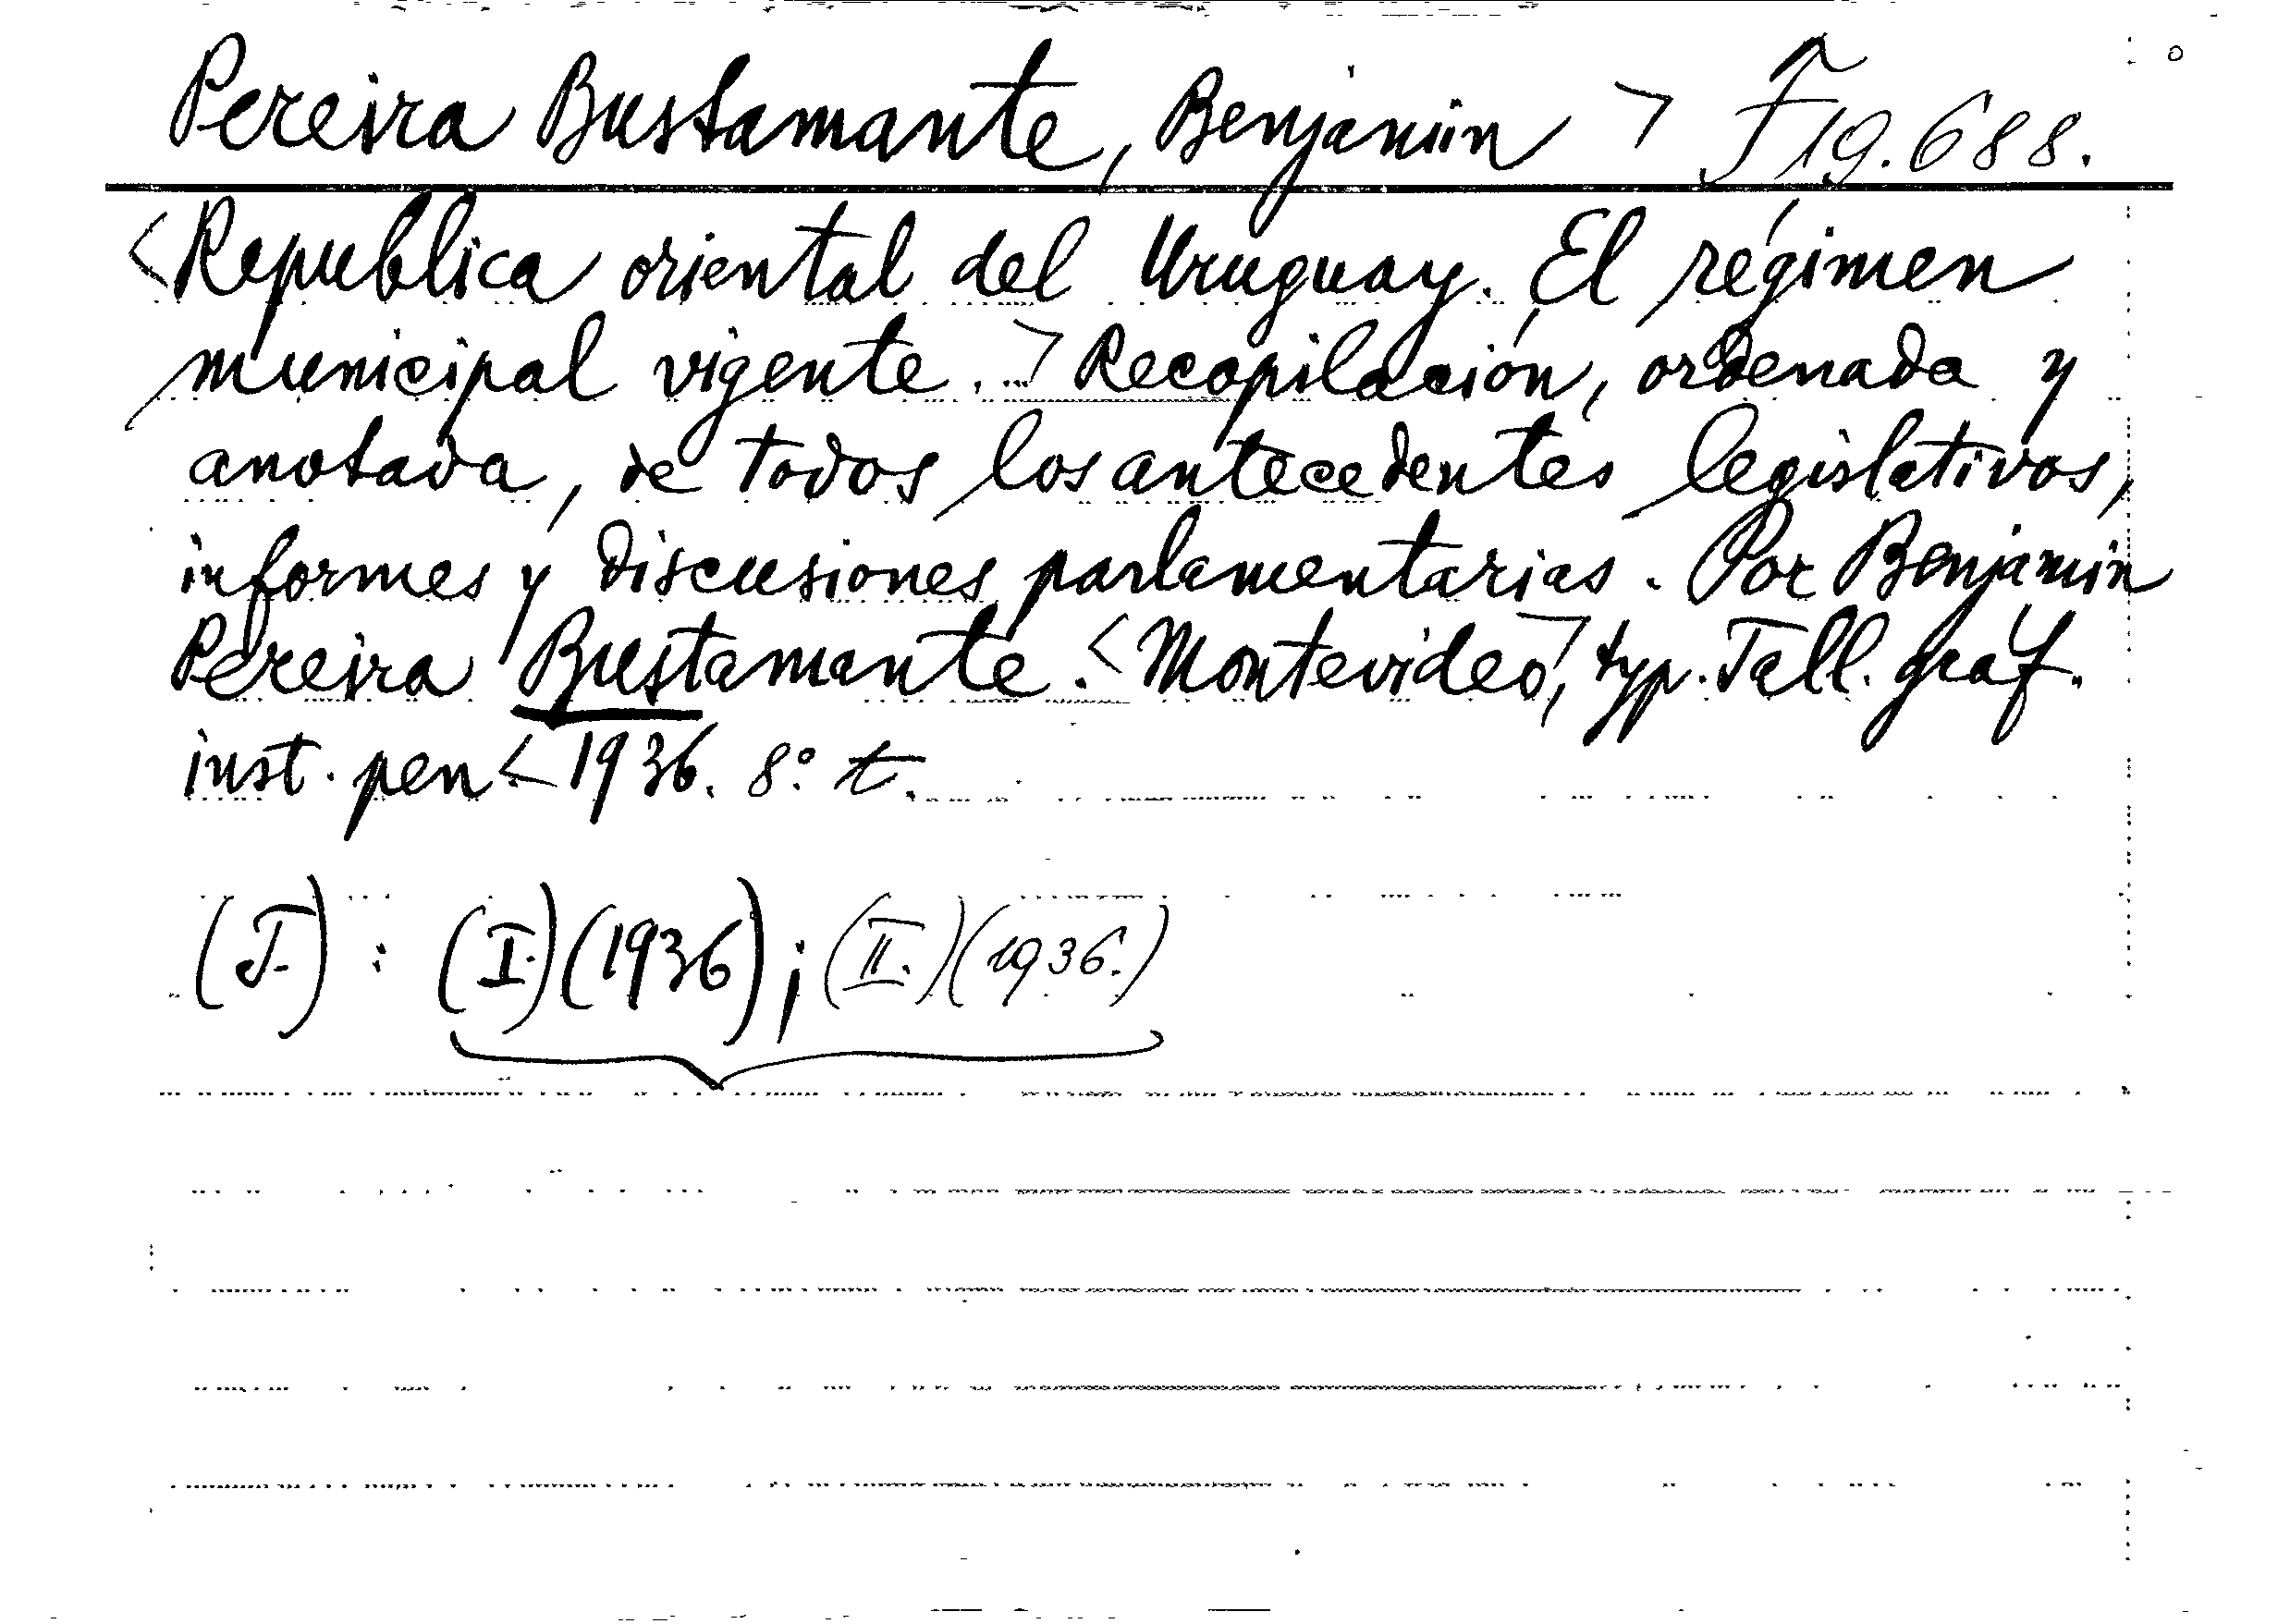 Pereira Bustamante, Benjamin > F 19.688.
<Republica oriental del Uruguay. El régimen
municipal vigente. > Recopilación, ordenada y
anotada, de todos los antecedentes legislativos,
informes y discusiones parlamentarias. Por Benjamin
Pereira Bustamante. < Montevideo >, typ. Tall. graf.
inst. pen < 1936. 8º. t.
(T.) : (I.) (1936) ; (II.) (1936.)